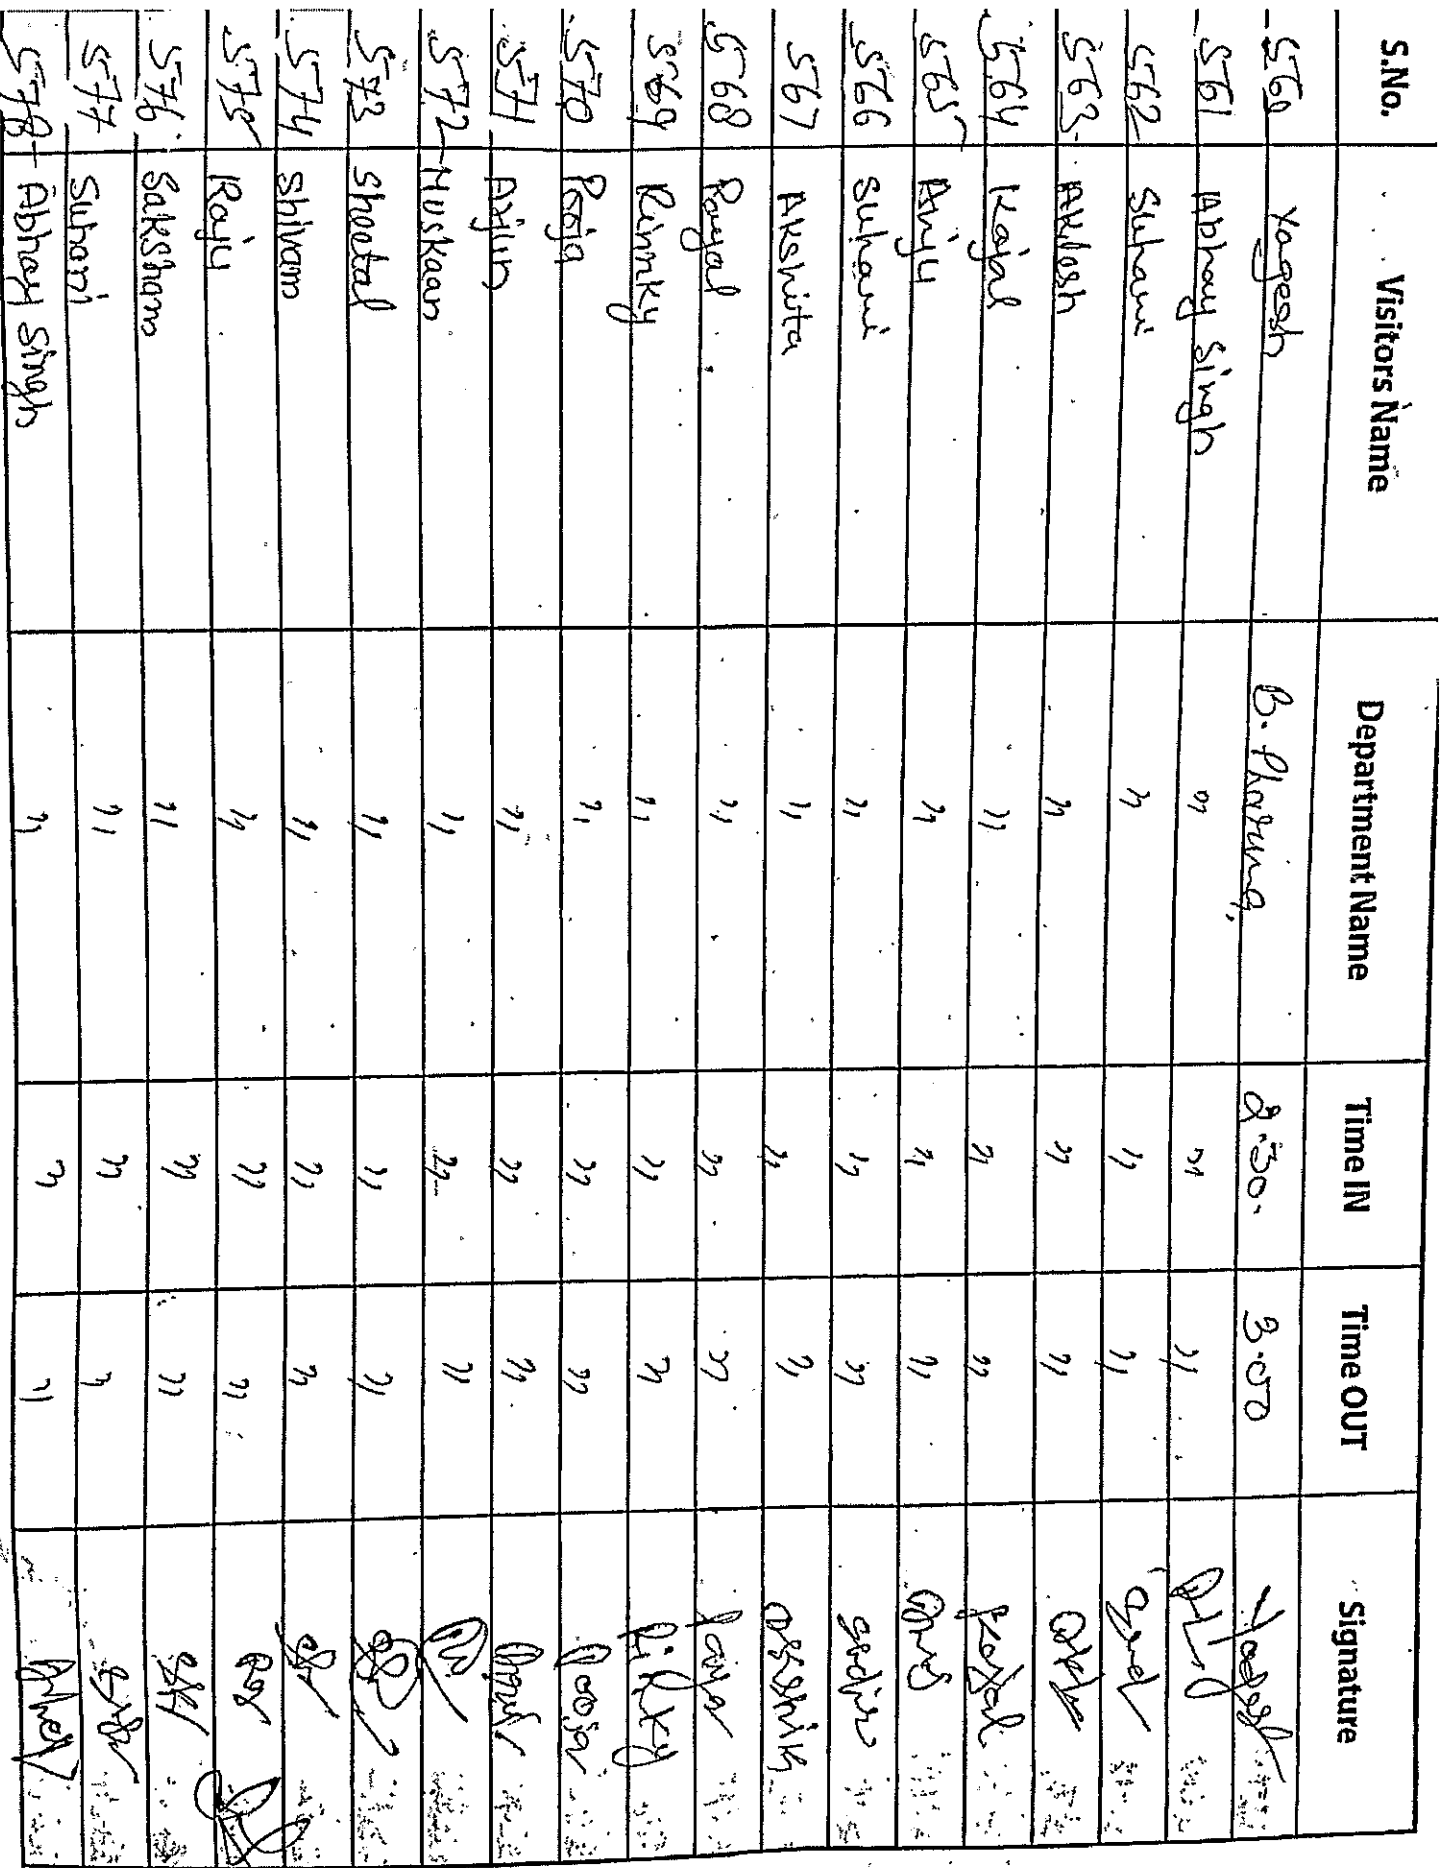 S.No. Visitors Name Department Name Time IN Time OUT Signature
560 Yogesh B. Pharma 2.30. 3.00 Yogesh
561 Abhay Singh " " "
562 Suhani " " "
563 Akhlesh " " "
564 Kajal " " " Kajal
565 Anju " " "
566 Suhani " " "
567 Akshita " " "
568 Payal " " "
569 Rinnky " " "
570 Pooja " " " Pooja
571 Arjun " " "
572 Muskaan " " "
573 Sheetal " " "
574 Shivam " " "
575 Raju " " "
576 Saksham " " "
577 Suhani " " "
578 Abhay Singh " " " Abhay